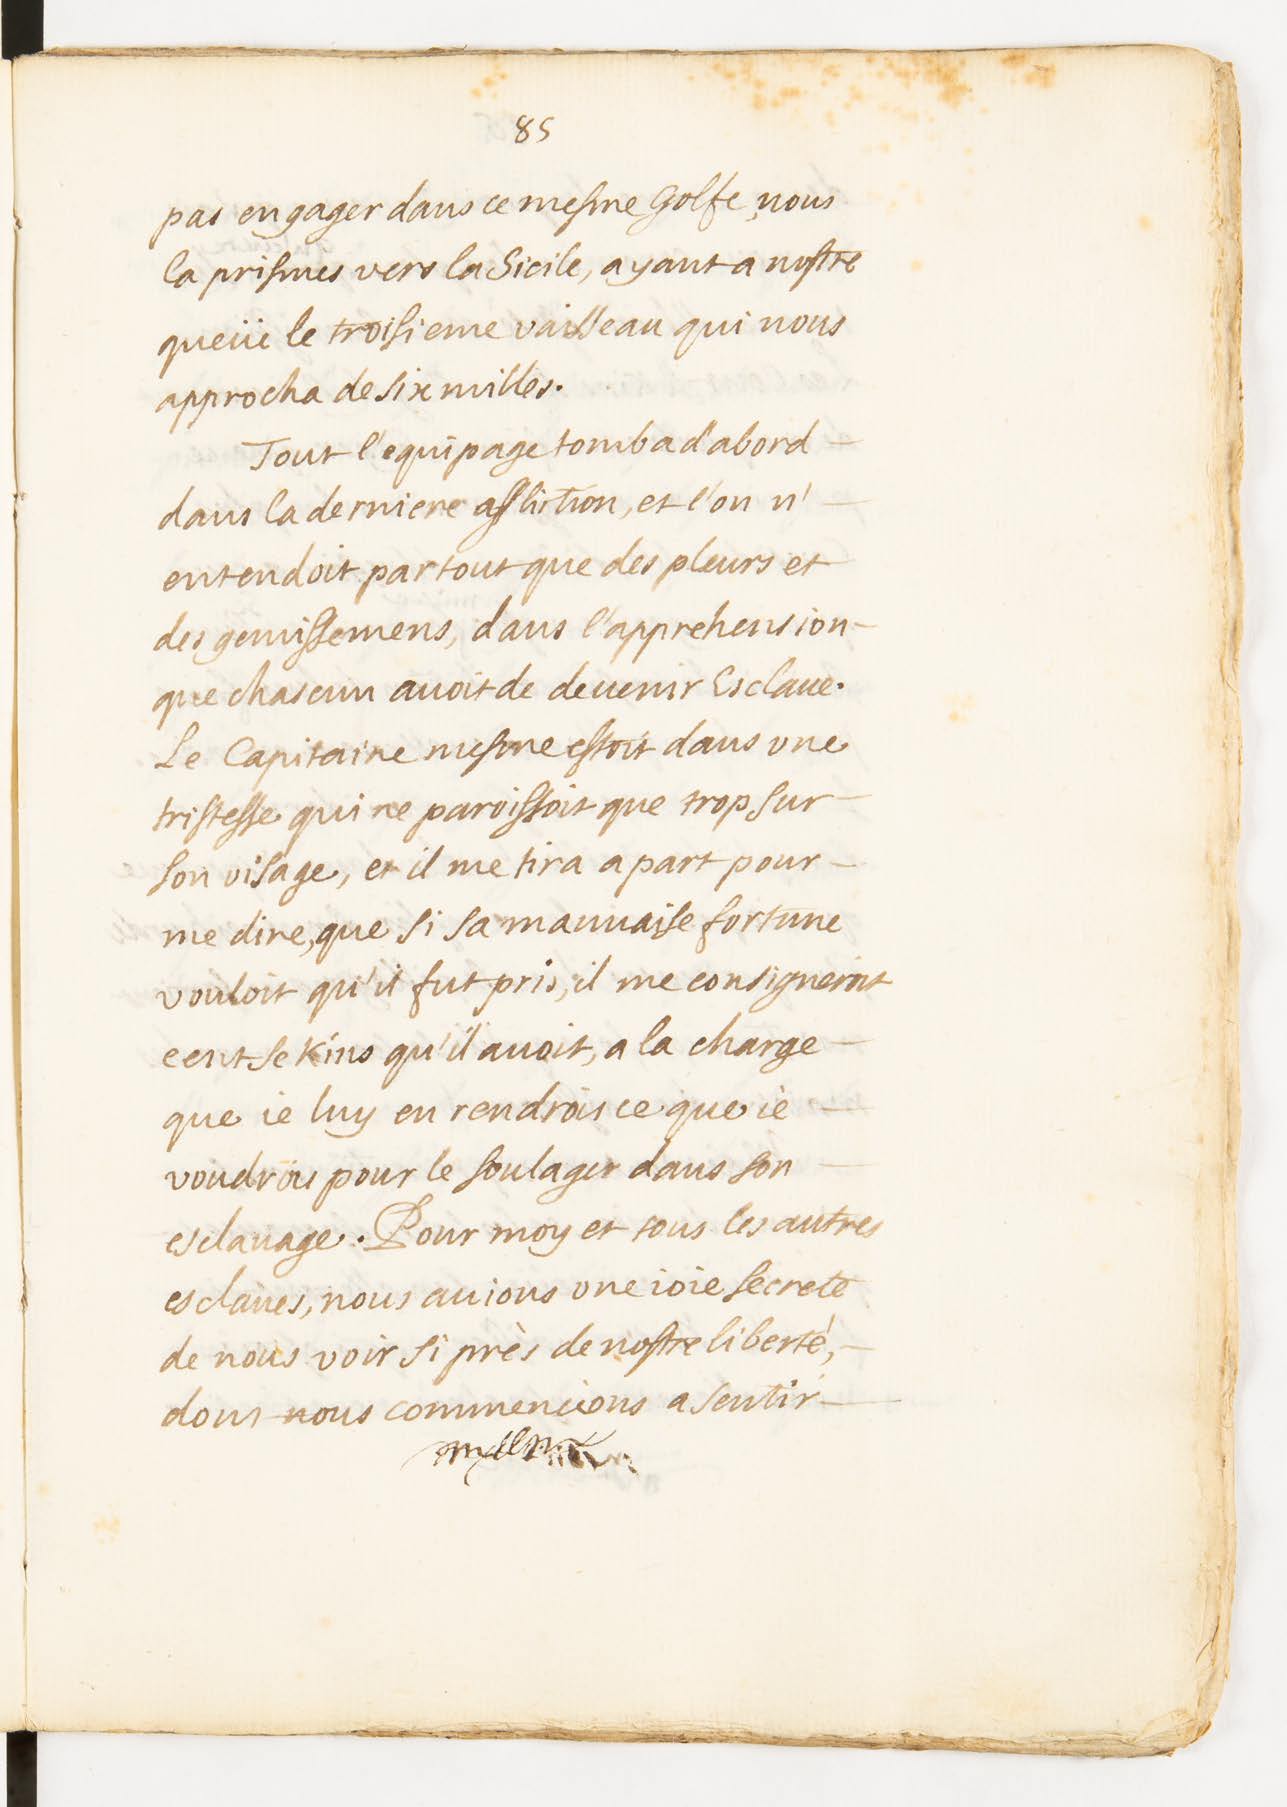 85
pas engager dans ce mesme Golfe, nous
la prismes vers la Sicile, ayant a nostre
queüe le troisieme vaisseau qui nous
approcha de six milles.
Tout l'equipage tomba d'abord
dans la derniere affliction, et l'on n'
entendoit partout que des pleurs et
des gemissemens, dans l'apprehension
que chascun avoit de devenir Esclave.
Le Capitaine mesme estoit dans une
tristesse qui ne paroissoit que trop sur
son visage, et il me tira a part pour
me dire, que si sa mauvaise fortune
vouloit qu'il fut pris, il me consigneroit
cent sekins qu'il avoit, a la charge
que ie luy en rendrois ce que ie
voudrois pour le soulager dans son
esclavage. Pour moy et tous les autres
esclaves, nous avions une ioie secrete
de nous voir si près de nostre liberté,
dont nous commencions a sentir